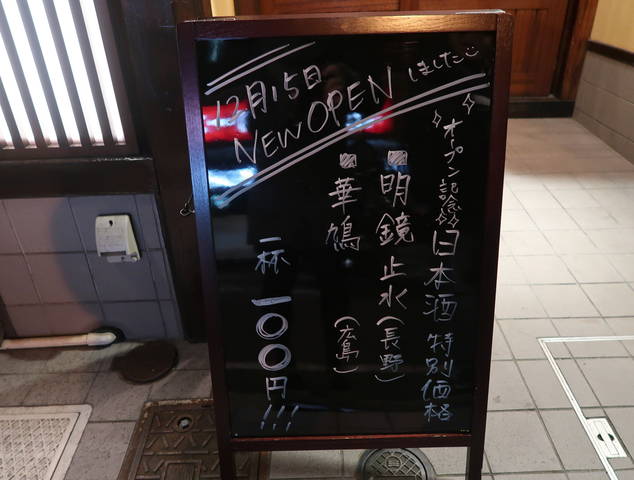 12月15日
NEW OPEN しました
オープン記念 日本酒 特別価格
明鏡止水(長野)
華鳩(広島)
一杯 一〇〇円!!!